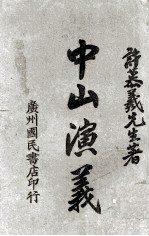 許慕羲先生著
中山演義
廣州國民書店印行